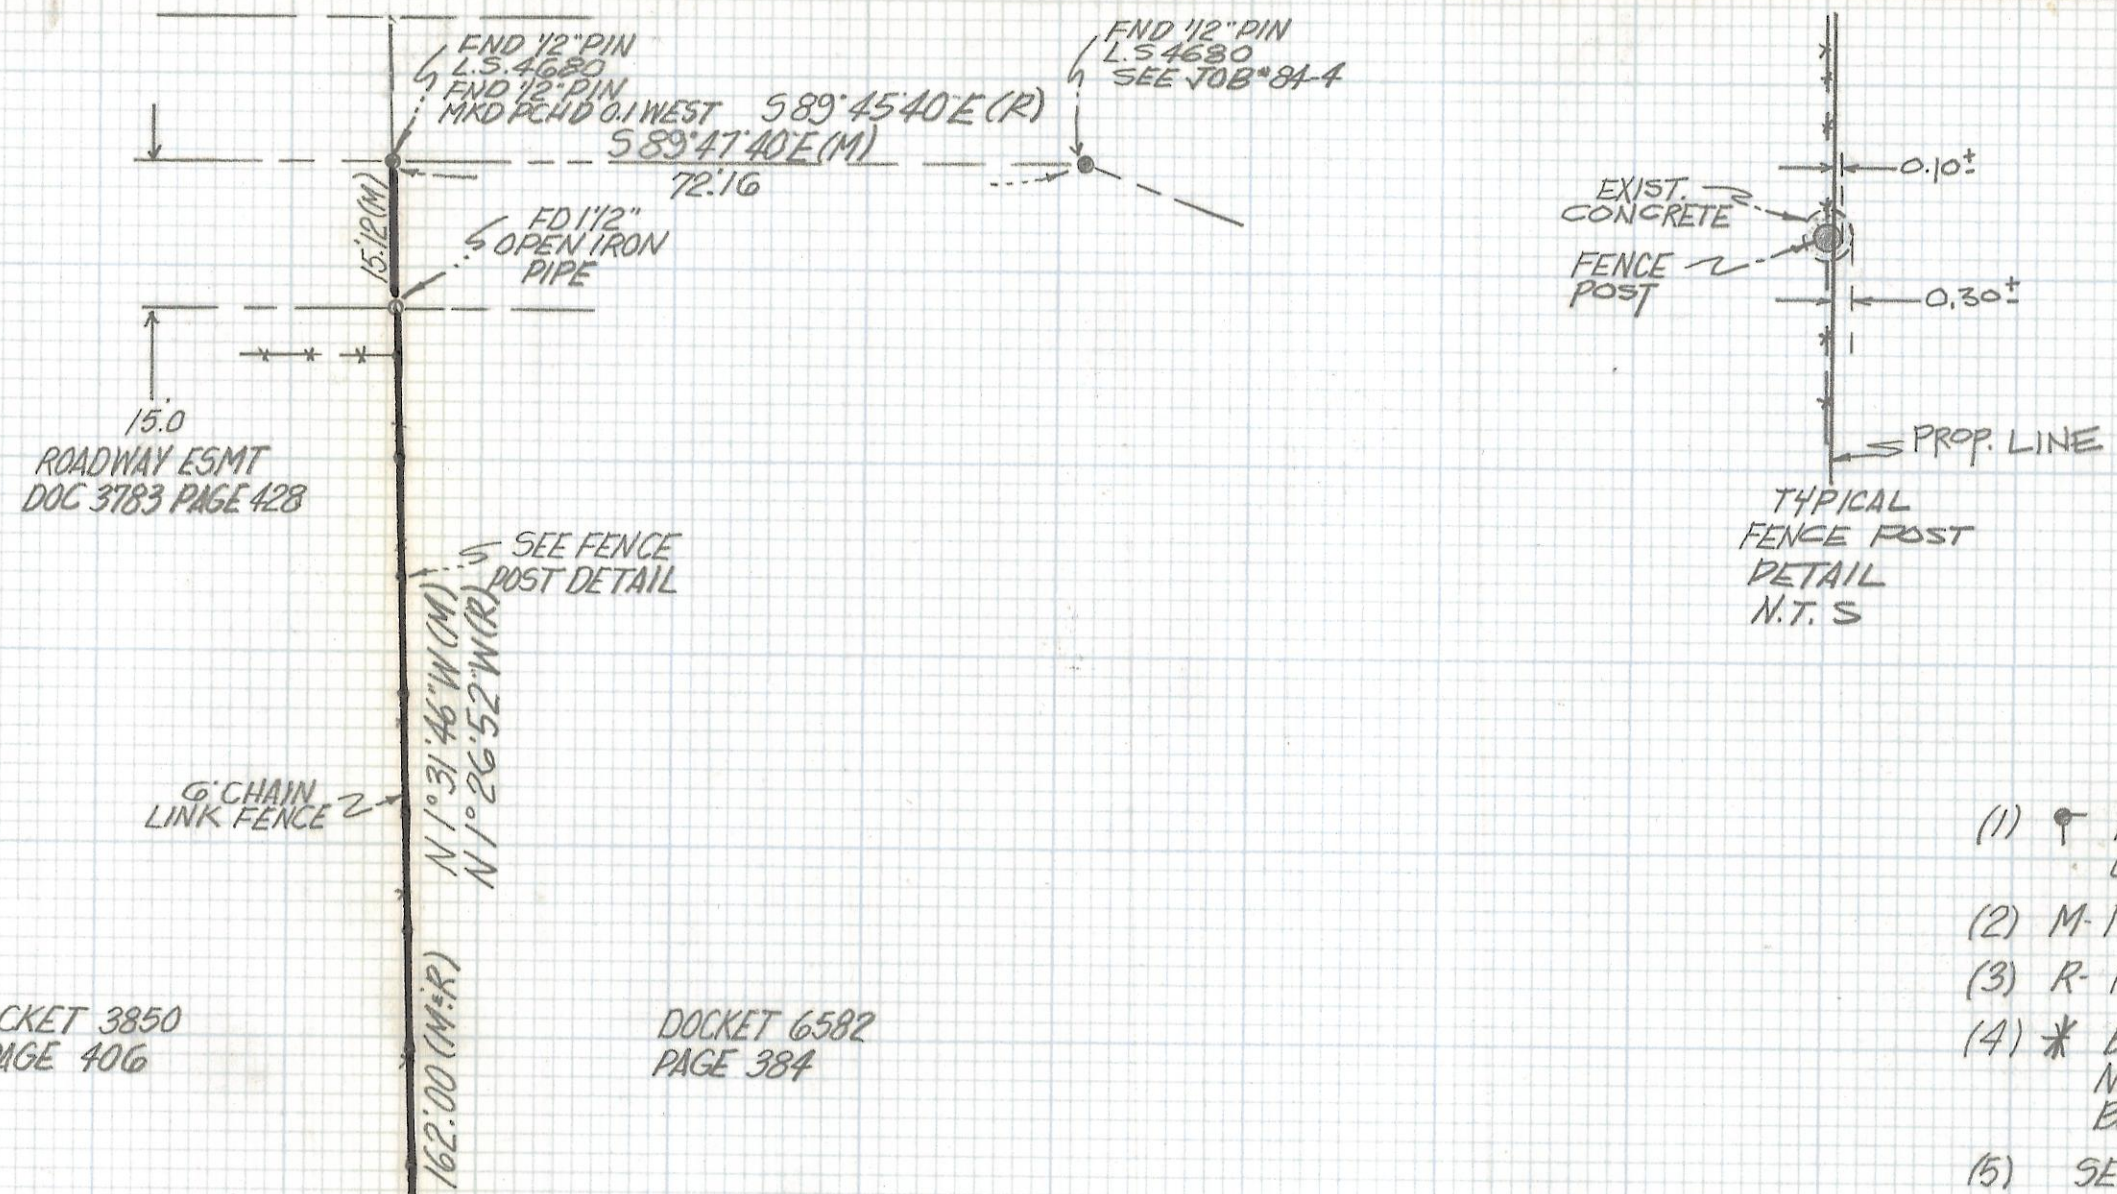 FND 1/2" PIN
L.S. 4680
FND 1/2" PIN
MKD PCHD 0.1 WEST
S 89°45'40" E (R)
S 89°47'40" E (M)
72.16
FND 1/2" PIN
L.S 4680
SEE JOB# 84-4
15.12 (M)
FD 1 1/2"
OPEN IRON
PIPE
15.0
ROADWAY ESMT
DOC 3783 PAGE 428
SEE FENCE
POST DETAIL
N 1° 31' 46" W (M)
N 1° 26' 52" W (R)
6' CHAIN
LINK FENCE
162.00 (M&R)
CKET 3850
AGE 406
DOCKET 6582
PAGE 384
0.10±
EXIST.
CONCRETE
FENCE
POST
0.30±
PROP. LINE
TYPICAL
FENCE POST
DETAIL
N.T.S
(1)
(2) M-
(3) R-
(4)
N
B
(5) SE